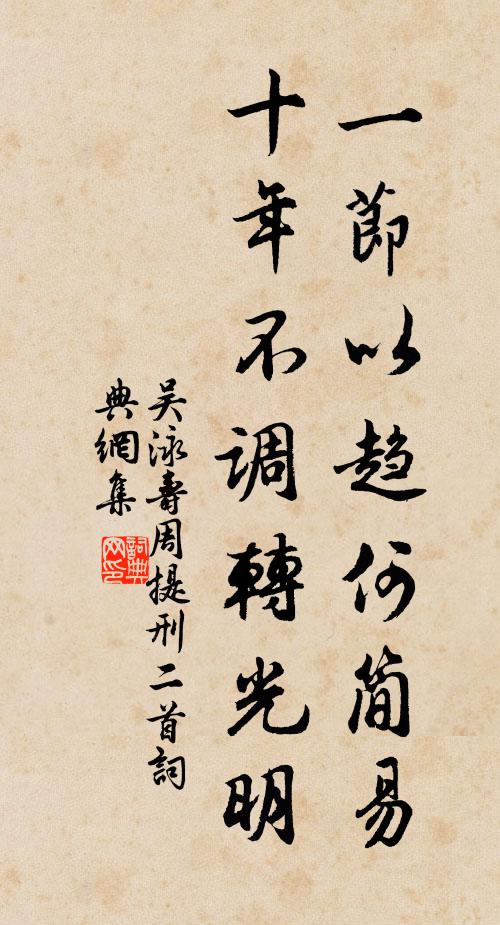 一節以趋何简易
十年不調轉光明
吴泳壽周提刑二首詞
典網集
詞典
网印